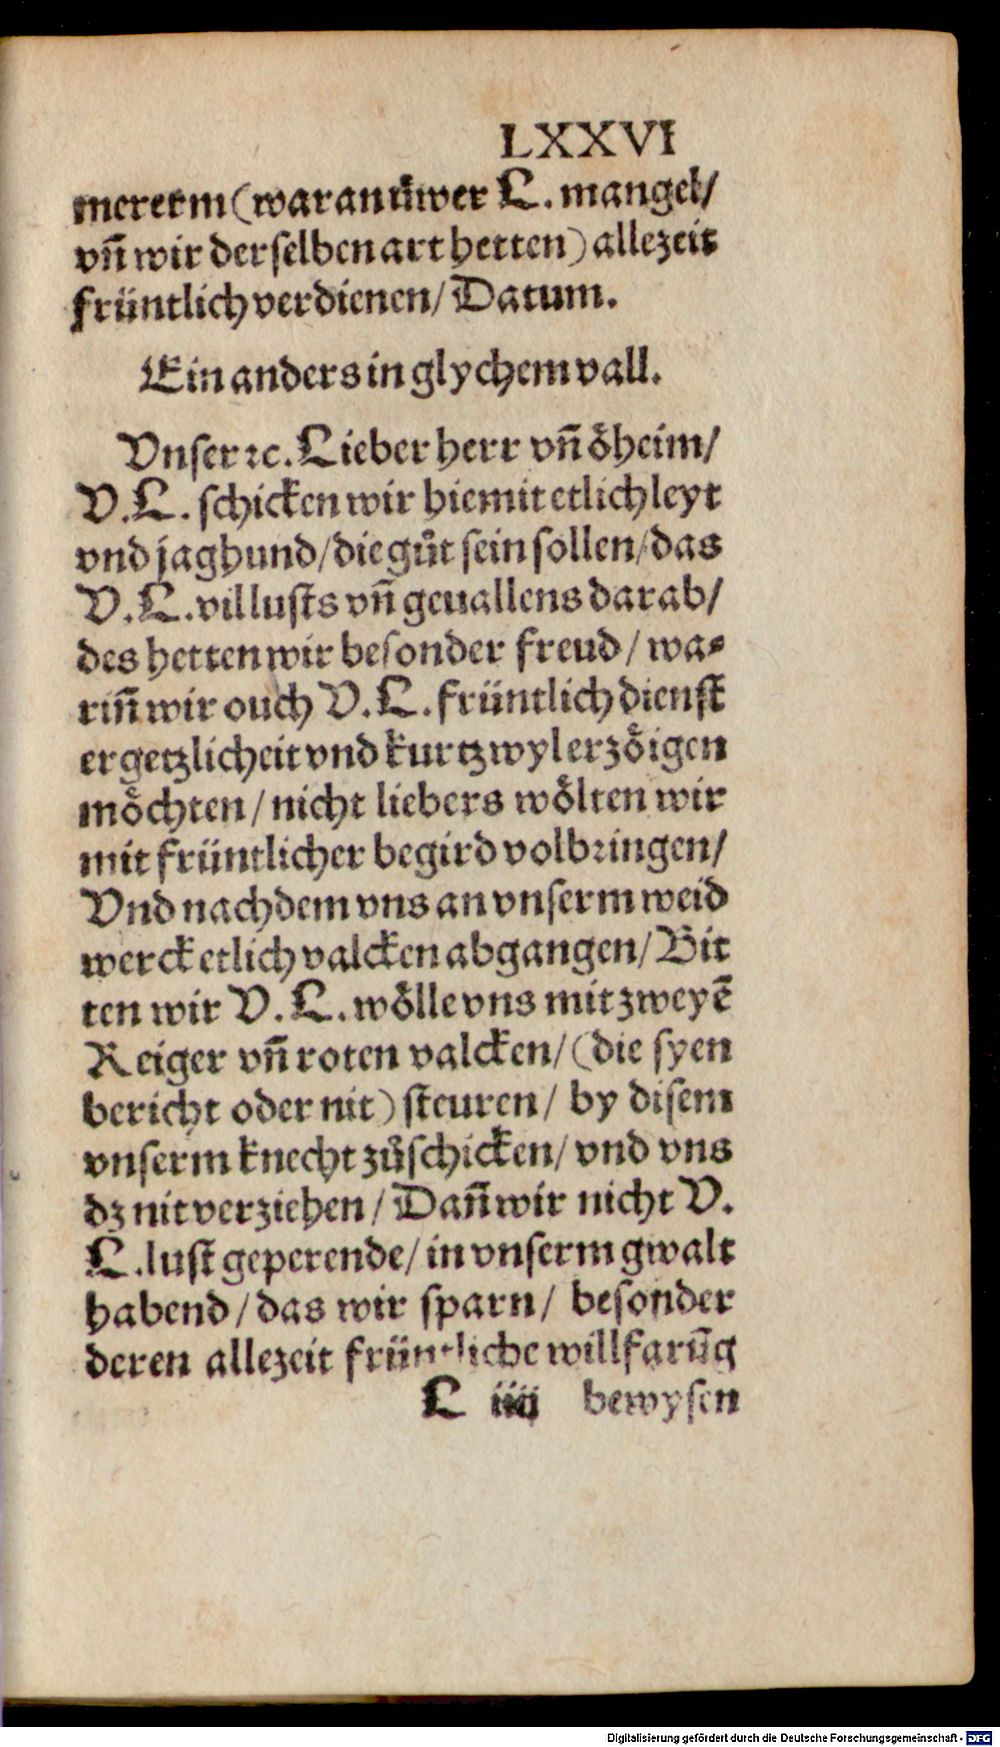 LXXVI
mererm (war an üwer L. mangel/
vñ wir derselben art hetten) allezeit
früntlich verdienen/ Datum.
Ein anders in glychem vall.
Vnser ꝛc. Lieber herr vñ öheim/
V.L. schicken wir hiemit etlich leyt
vnd jaghund/ die gůt sein sollen/ das
V.L. vil lusts vñ geuallens darab/
des hetten wir besonder freud/ wa⸗
riñ wir ouch V.L. früntlich dienst
ergetzlicheit vnd kurtzwyl erzöigen
möchten/ nicht liebers wölten wir
mit früntlicher begird volbringen/
Vnd nachdem vns an vnserm weid
werck etlich valcken abgangen/ Bit
ten wir V.L. wölle vns mit zweyē
Reiger vñ roten valcken/ (die syen
bericht oder nit) steuren/ by disem
vnserm knecht zůschicken/ vnd vns
dz nit verziehen/ Dañ wir nicht V.
L. lust geperende/ in vnserm gwalt
habend/ das wir sparn/ besonder
deren allezeit früntliche willfarūg
L iiij bewysen
Digitalisierung gefördert durch die Deutsche Forschungsgemeinschaft - DFG